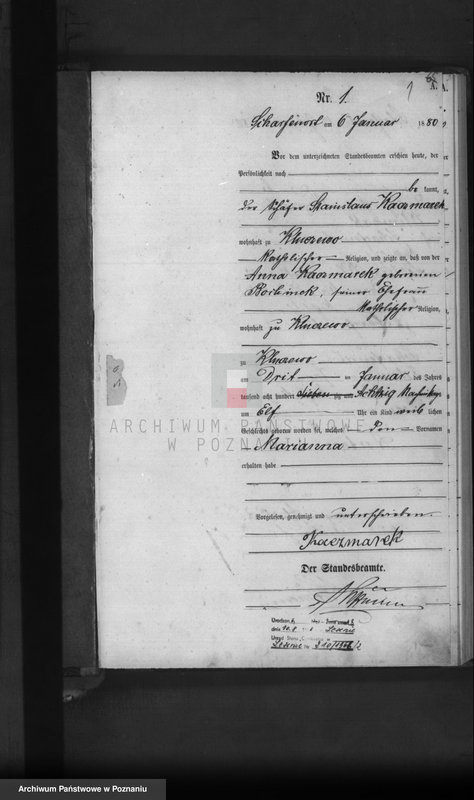 A.
Nr. 1.
Scharfenort am 6 Januar 1880
Vor dem unterzeichneten Standesbeamten erschien heute, der
Persönlichkeit nach
be kannt,
der Schäfer Stanislaus Kaczmarek
wohnhaft zu Kluczewo
Katholischer Religion, und zeigte an, daß von der
Anna Kaczmarek geborenen
seiner Ehefrau
Katholischer Religion,
wohnhaft zu Kluczewo
zu Kluczewo
am Drit Januar des Jahres
tausend acht hundert Achtzig
um Elf Uhr ein Kind weib lichen
Geschlechts geboren worden sei, welches den Vornamen
Marianna
erhalten habe
Vorgelesen, genehmigt und unterschrieben
Kaczmarek
Der Standesbeamte.
ARCHIWUM PAŃSTWOWE
W POZNANIU
Archiwum Państwowe w Poznaniu